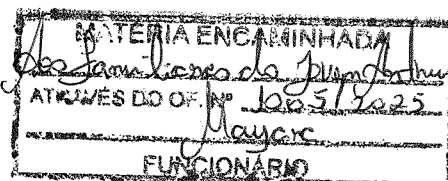 MATÉRIA ENCAMINHADA
Aos familiares do Jovem Arthur
ATRAVÉS DO OF. Nº 1005/2025
Mayara
FUNCIONÁRIO